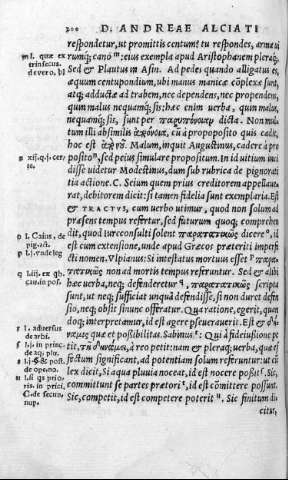 300 D. ANDREAE ALCIATI
respondetur, ut promittis centum? tu respondes, arma ui
rumq́; cano m: eius exempla apud Aristophanem pleraq́;
Sed & Plautus in Asin. Ad pedes quando alligatus es,
æquum centupondium, ubi manus manicæ cōplexæ sunt,
atq; adductæ ad trabem, nec dependes, nec propendes,
quin malus nequamq́; sis: hæc enim uerba, quin malus,
nequamq́; sis, sunt per dicta. Non mul
tum illi absimilis cū à proposito quis cadit,
hoc est Malum, inquit Augustinus, cadere à pro
posito n, sed peius simulare propositum. In id uitium inci
disse uidetur Modestinus, dum sub rubrica de pignorati
tia actione. C. Seium quem prius creditorem appellaue
rat, debitorem dicit: si tamen fidelia sunt exemplaria. Est
& TRACTVS, cum uerbo utimur, quod non solum ad
præsens tempus refertur, sed futurum quoq; comprehen
dit, quod iureconsulti solent παρατατικῶς dicere o, id
est cum extensione, unde apud Græcos præteriti imperfe
cti nomen. Vlpianus: Si intestatus mortuus esset P παρα
τατικῶς non ad mortis tempus referuntur. Sed & alibi
hæc uerba, neq; defenderetur q, παρατατικῶς scripta
sunt, ut neq; sufficiat unquā defendisse, si non duret defen
sio, neq; obsit sinunc offeratur. Qua ratione, egerit, quan
doq; interpretamur, id est agere perseuerauerit. Est &
quæ est poßibilitas. Sabinus r: Qui à fideiussione pe
tit, à reo petit: nam & pleraq; uerba, quæ ef
fectum significant, ad potentiam solum referuntur: ut cū
lex dicit, Si aqua pluuia noceat, id est nocere poßit s. Sic,
committunt se partes prætori t, id est cōmittere possunt.
Sic, competit, id est competere poterit u Sic finitum di
citur,
m l. quæ ex
trinsecus.
de uero. b
n xij. q. j. cer
te.
o l. Caius, de
pig. act.
p l. j. unde leg
q l. iij. ex qb.
cau. in pos.
r l. aduersus
de arbi.
s l. j. in princ.
de aq. plu.
t
de ope. no.
u l. si qs prio
ris. in prici,
C. de secun.
nup.